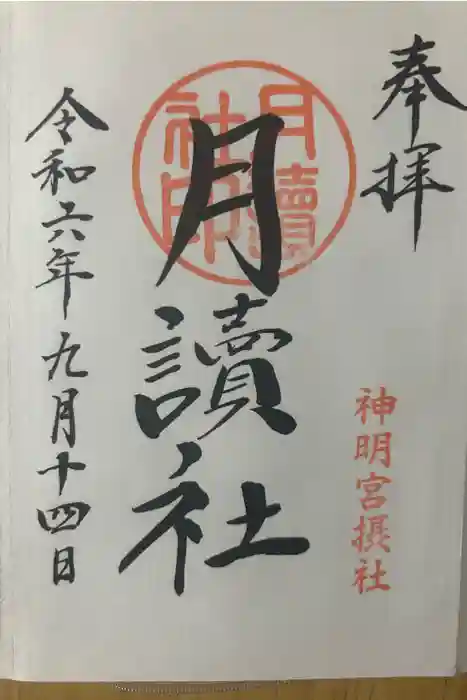 奉拝
神明宮摂社
月讀社
月讀社印
令和六年九月十四日